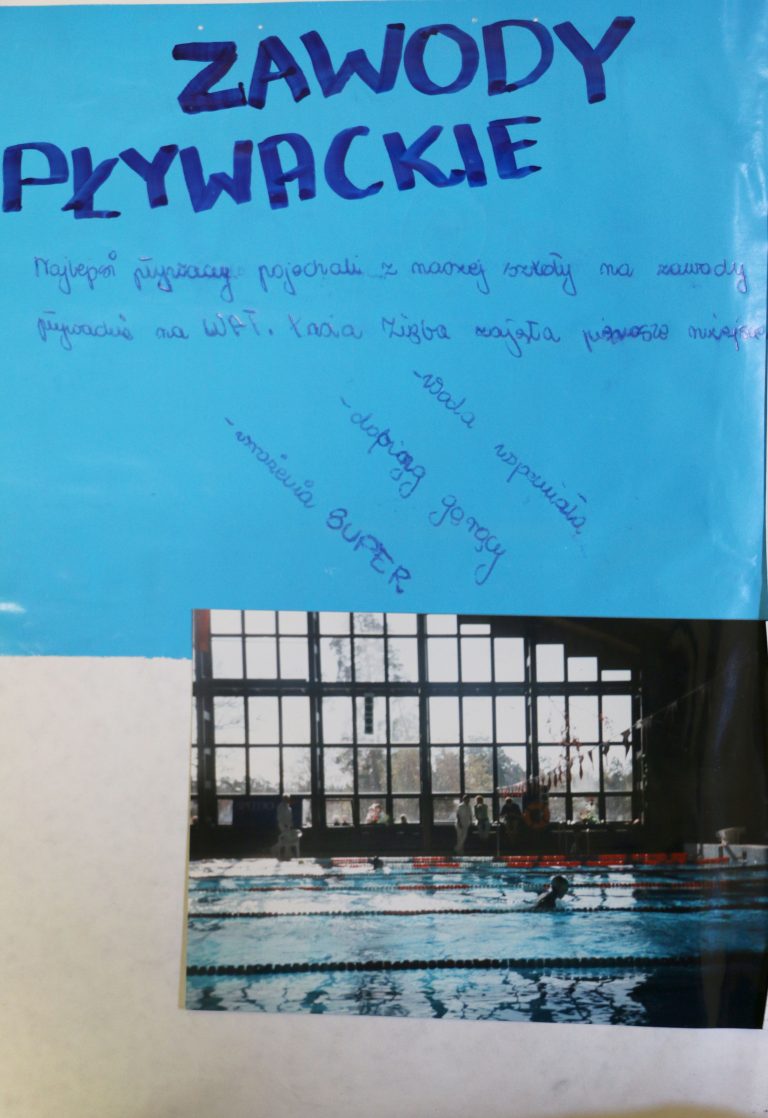 ZAWODY
PŁYWACKIE
Najlepsi pływacy pojechali z naszej szkoły na zawody
pływackie na WAT. Kasia Zięba zajęła pierwsze miejsce
- woda wspaniała
- doping gorący
- wrażenia SUPER